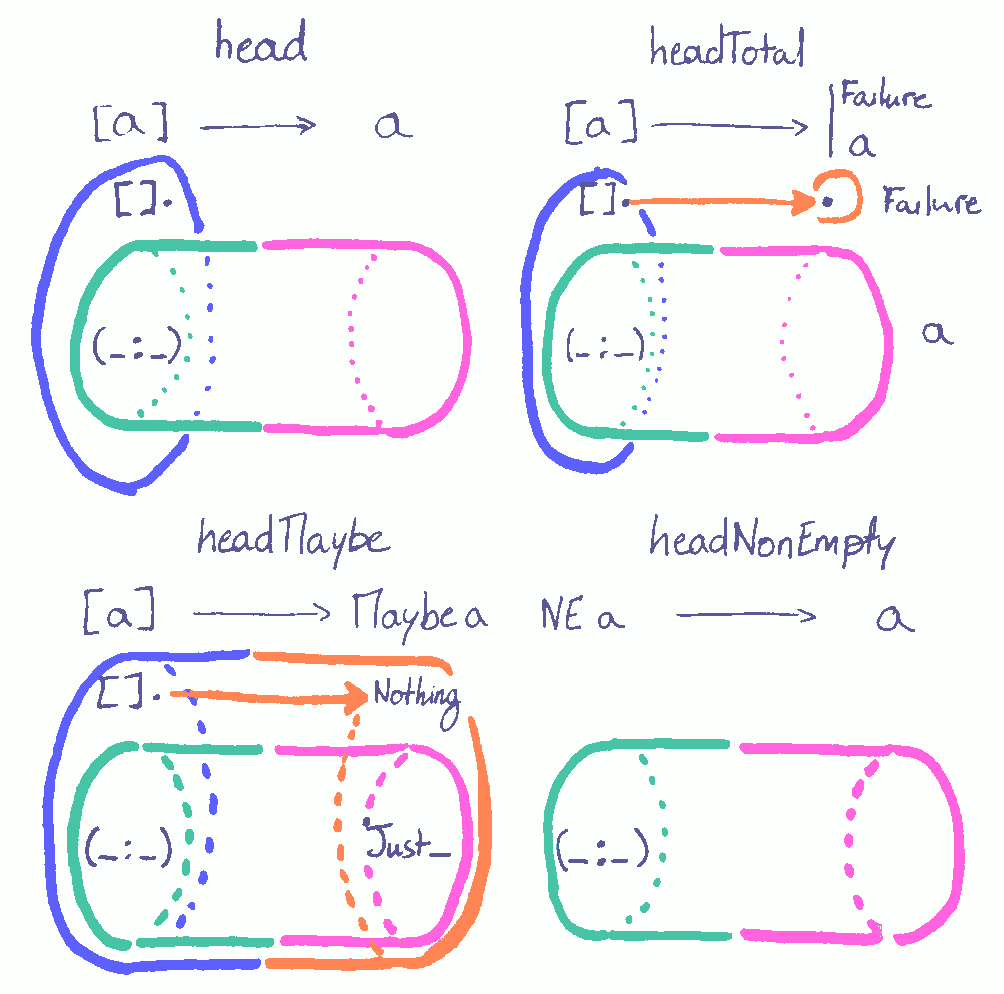 head
[a] → a
[].
(_:_)
headTotal
[a] → | Failure
a
[]. Failure
(_:_) a
headMaybe
[a] → Maybe a
[]. Nothing
(_:_) Just _
headNonEmpty
NE a → a
(_:_)